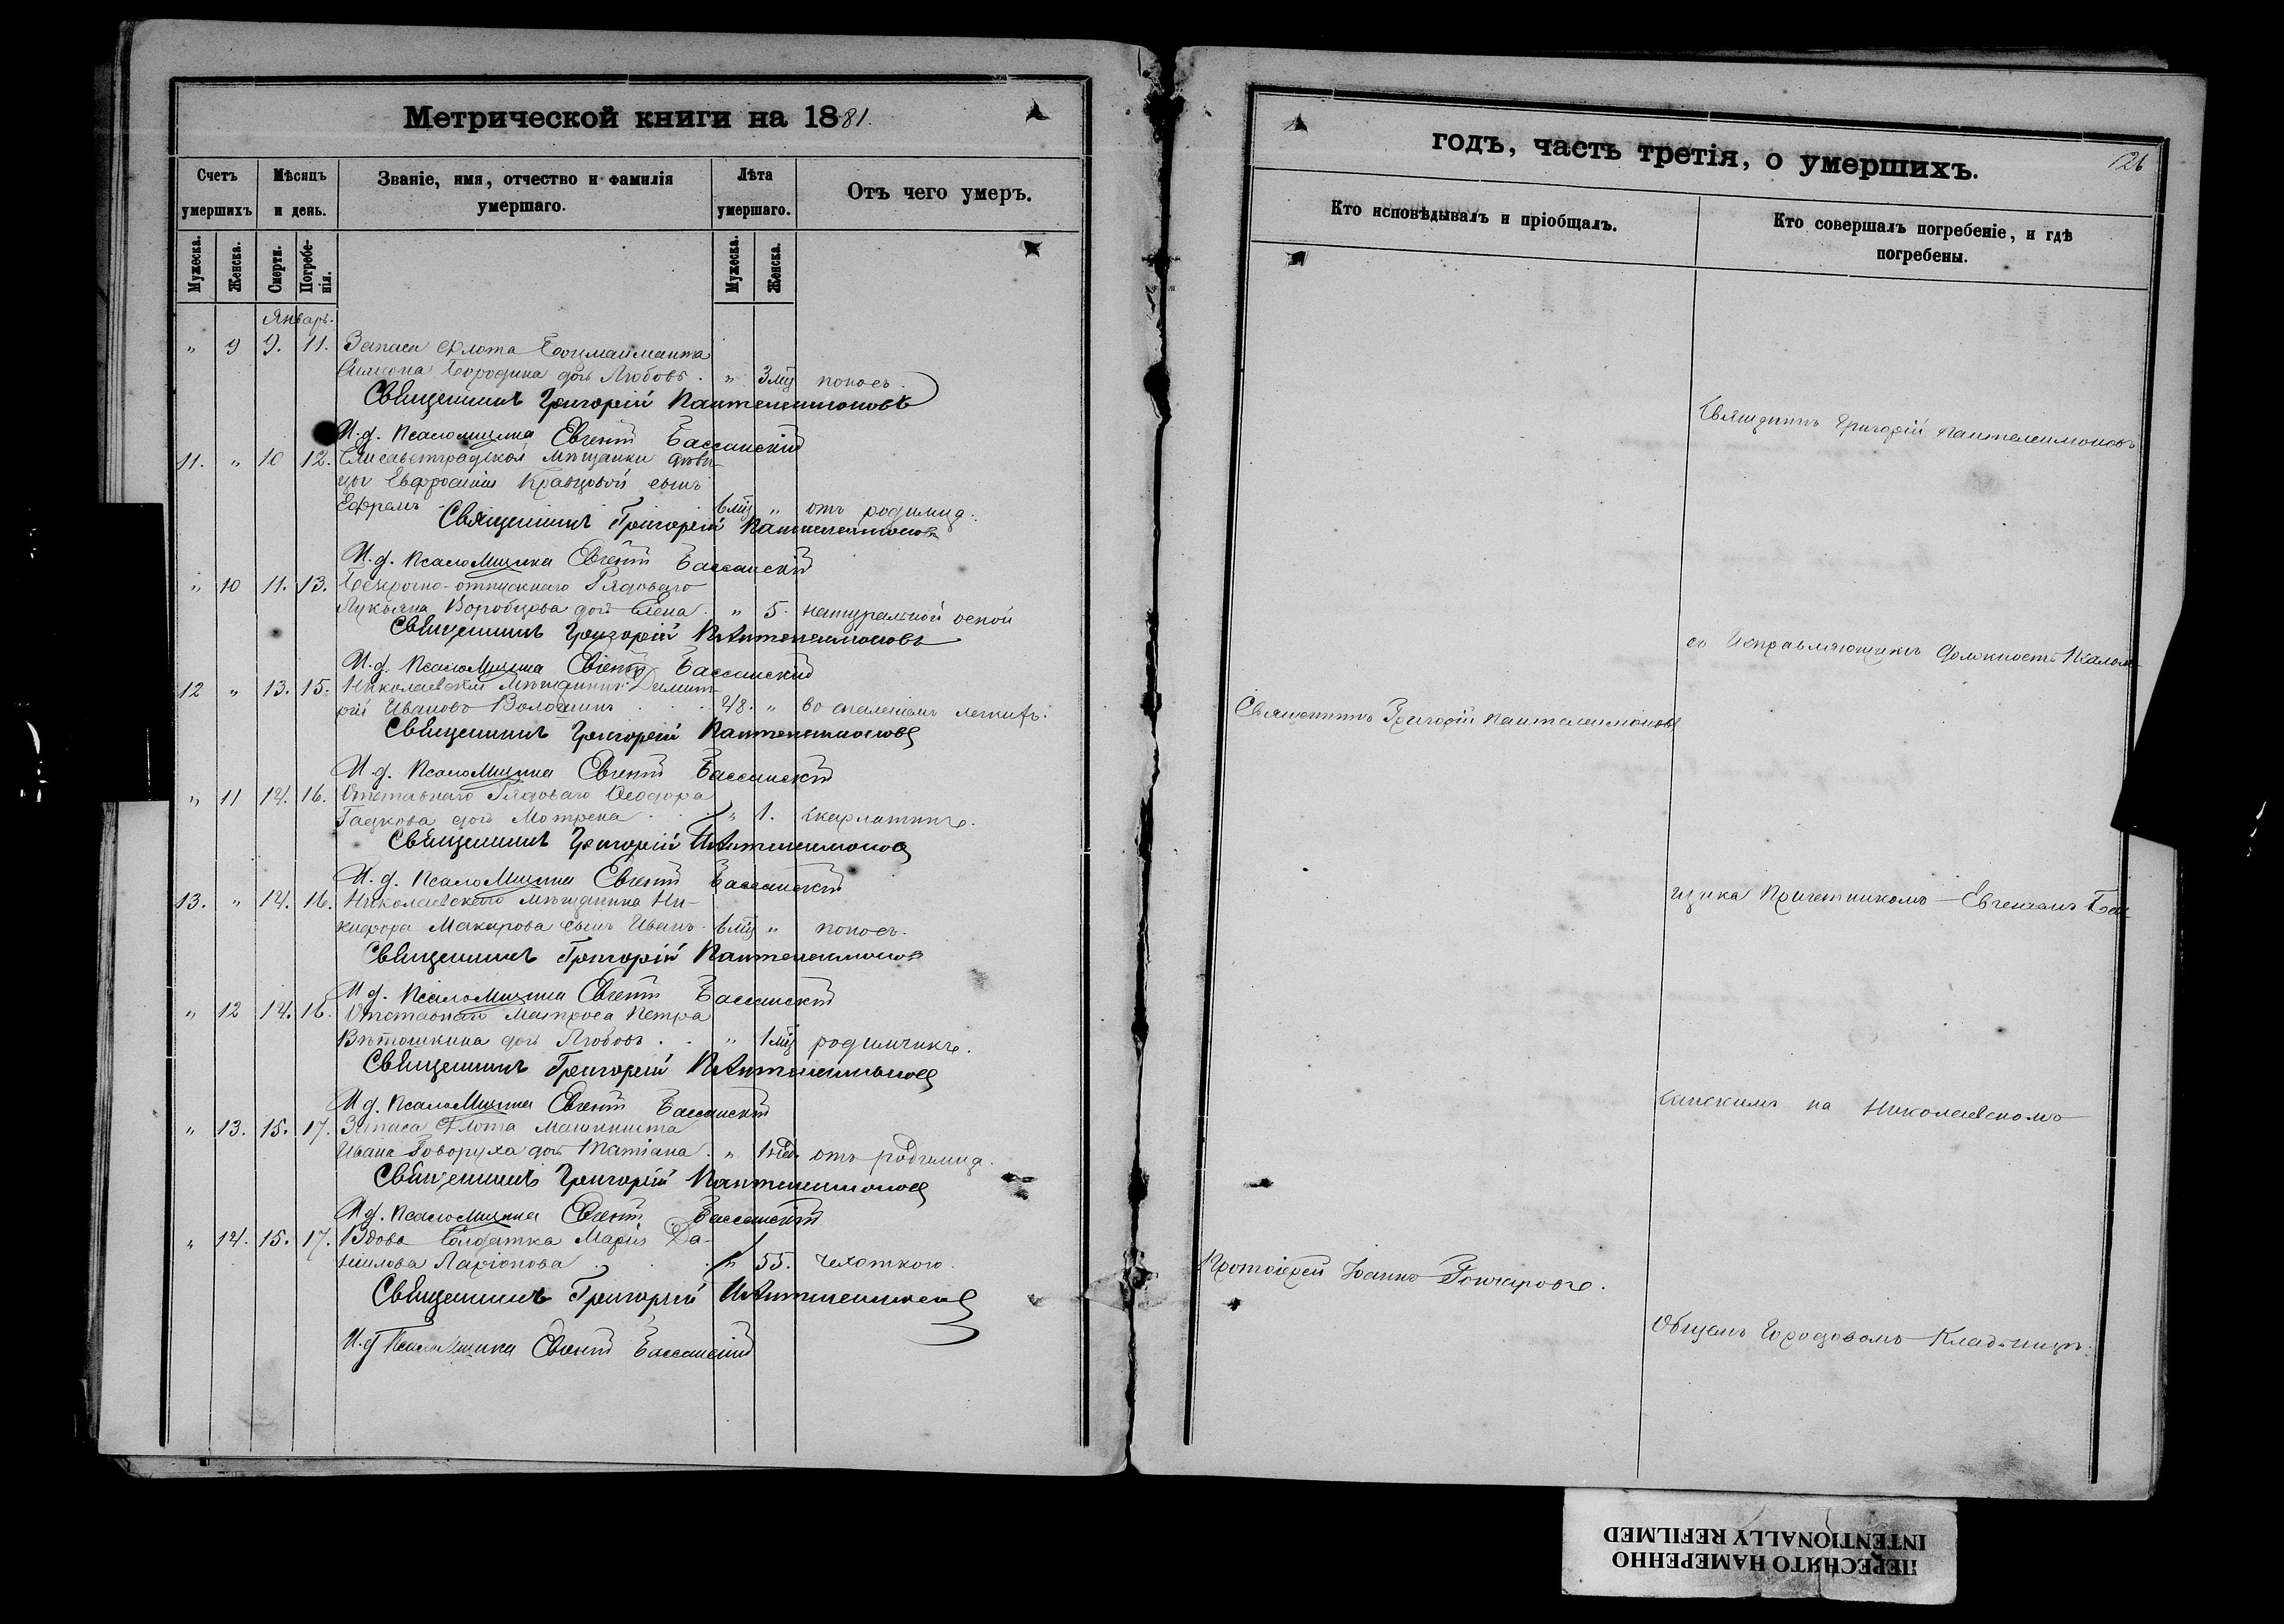 Метрической книги на 1881.
Счетъ умершихъ
Мѣсяцъ и день.
Званіе, имя, отчество и фамилія умершаго.
Лѣта умершаго.
Отъ чего умеръ.
Мужеска.
Женска.
Смерти.
Погребенія.
Мужеска.
Женска.
Январь.
„ 9 9. 11. Запаса Флота Боцманманта
Симеона Бородина дочь Любовь. „ 3 мц поносъ.
Священникъ Григорій Пантелеимоновъ
И.д. Псаломщика Евгеній Бассанскій
11. „ 10 12. Елисаветградской Мѣщанки дѣви-
цы Евфросиніи Кравцовой сынъ
Ефремъ 6 мц „ отъ родимца.
Священникъ Григорій Пантелеимоновъ
И.д. Псаломщика Евгеній Бассанскій
„ 10 11. 13. Безсрочно-отпускнаго Рядоваго
Лукьяна Воробцова дочь Елена „ 5. натуральной оспой
Священникъ Григорій Пантелеимоновъ
И.д. Псаломщика Евгеній Бассанскій
12 „ 13. 15. Николаевскій Мѣщанинъ Димит-
рій Ивановъ Волошинъ 48. „ воспаленіемъ легкихъ.
Священникъ Григорій Пантелеимоновъ
И.д. Псаломщика Евгеній Бассанскій
„ 11 14. 16. Отставнаго Рядоваго Ѳеодора
дочь Мотрена „ 1. скарлатине.
Священникъ Григорій Пантелеимоновъ
И.д. Псаломщика Евгеній Бассанскій
13. „ 14. 16. Николаевскаго Мѣщанина Ни-
кифора Макарова сынъ Иванъ 6 мц „ поносъ.
Священникъ Григорій Пантелеимоновъ
И.д. Псаломщика Евгеній Бассанскій
„ 12 14. 16. Отставнаго Матроса Петра
Вѣтошкина дочь Любовь. „ 1 мц родимчике.
Священникъ Григорій Пантелеимоновъ
И.д. Псаломщика Евгеній Бассанскій
„ 13. 15. 17. Запаса Флота Машиниста
Ивана Говоруха дочь Татіана. „ отъ родимца.
Священникъ Григорій Пантелеимоновъ
И.д. Псаломщика Евгеній Бассанскій
„ 14. 15. 17. Вдова Солдатка Марія Да-
нилова Ларіонова „ 55. чехоткою.
Священникъ Григорій Пантелеимоновъ
И.д. Псаломщика Евгеній Бассанскій
годъ, часть третія, о умершихъ.
126
Кто исповѣдывалъ и пріобщалъ.
Кто совершалъ погребеніе, и гдѣ погребены.
Священникъ Григорій Пантелеимоновъ
съ Исправляющимъ должность Псалом-
Священникъ Григорій Пантелеимоновъ
щика Причетникомъ Евгеніемъ Бас-
санскимъ на Николаевскомъ
Протоіерей Іоаннъ Гончаровъ.
Общемъ Городовомъ Кладбищѣ.
ПЕРЕСНЯТО НАМЕРЕННО
INTENTIONALLY REFILMED